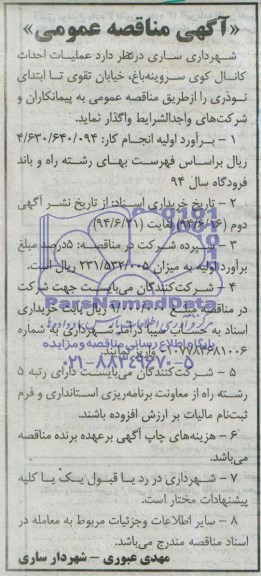 «آگهی مناقصه عمومی»
شهرداری ساری درنظر دارد عملیات احداث
کانال کوی سروینه‌باغ، خیابان تقوی تا ابتدای
نوذری را ازطریق مناقصه عمومی به پیمانکاران و
شرکت‌های واجدالشرایط واگذار نماید.
۱ – برآورد اولیه انجام کار: ۴/۶۳۰/۶۴۰/۰۹۴
ریال براساس فهرست بهای رشته راه و باند
فرودگاه سال ۹۴
۲ – تاریخ خریداری اسناد: از تاریخ نشر آگهی
دوم (۹۴/۶/۱۶) لغایت (۹۴/۶/۲۱)
۳ – سپرده شرکت در مناقصه: ۵درصد مبلغ
برآورد اولیه به میزان ۲۳۱/۵۳۲/۰۰۵ ریال است.
۴ – شرکت‌کنندگان می‌بایست جهت شرکت
در مناقصه مبلغ ریال بابت خریداری
اسناد به حساب درآمد شهرداری به شماره
۰۱۰۷۷۸۳۶۸۱۰۰۶ واریز نمایند.
پایگاه اطلاع رسانی مناقصه و مزایده
۰۲۱-۸۸۳۴۹۶۷۰-۵
ParsNamadData
۵ – شرکت‌کنندگان می‌بایست دارای رتبه ۵
رشته راه از معاونت برنامه‌ریزی استانداری و فرم
ثبت‌نام مالیات بر ارزش افزوده باشند.
۶ – هزینه‌های چاپ آگهی برعهده برنده مناقصه
می‌باشد.
۷ – شهرداری در رد یا قبول یک یا کلیه
پیشنهادات مختار است.
۸ – سایر اطلاعات وجزئیات مربوط به معامله در
اسناد مناقصه مندرج می‌باشد.
مهدی عبوری – شهردار ساری